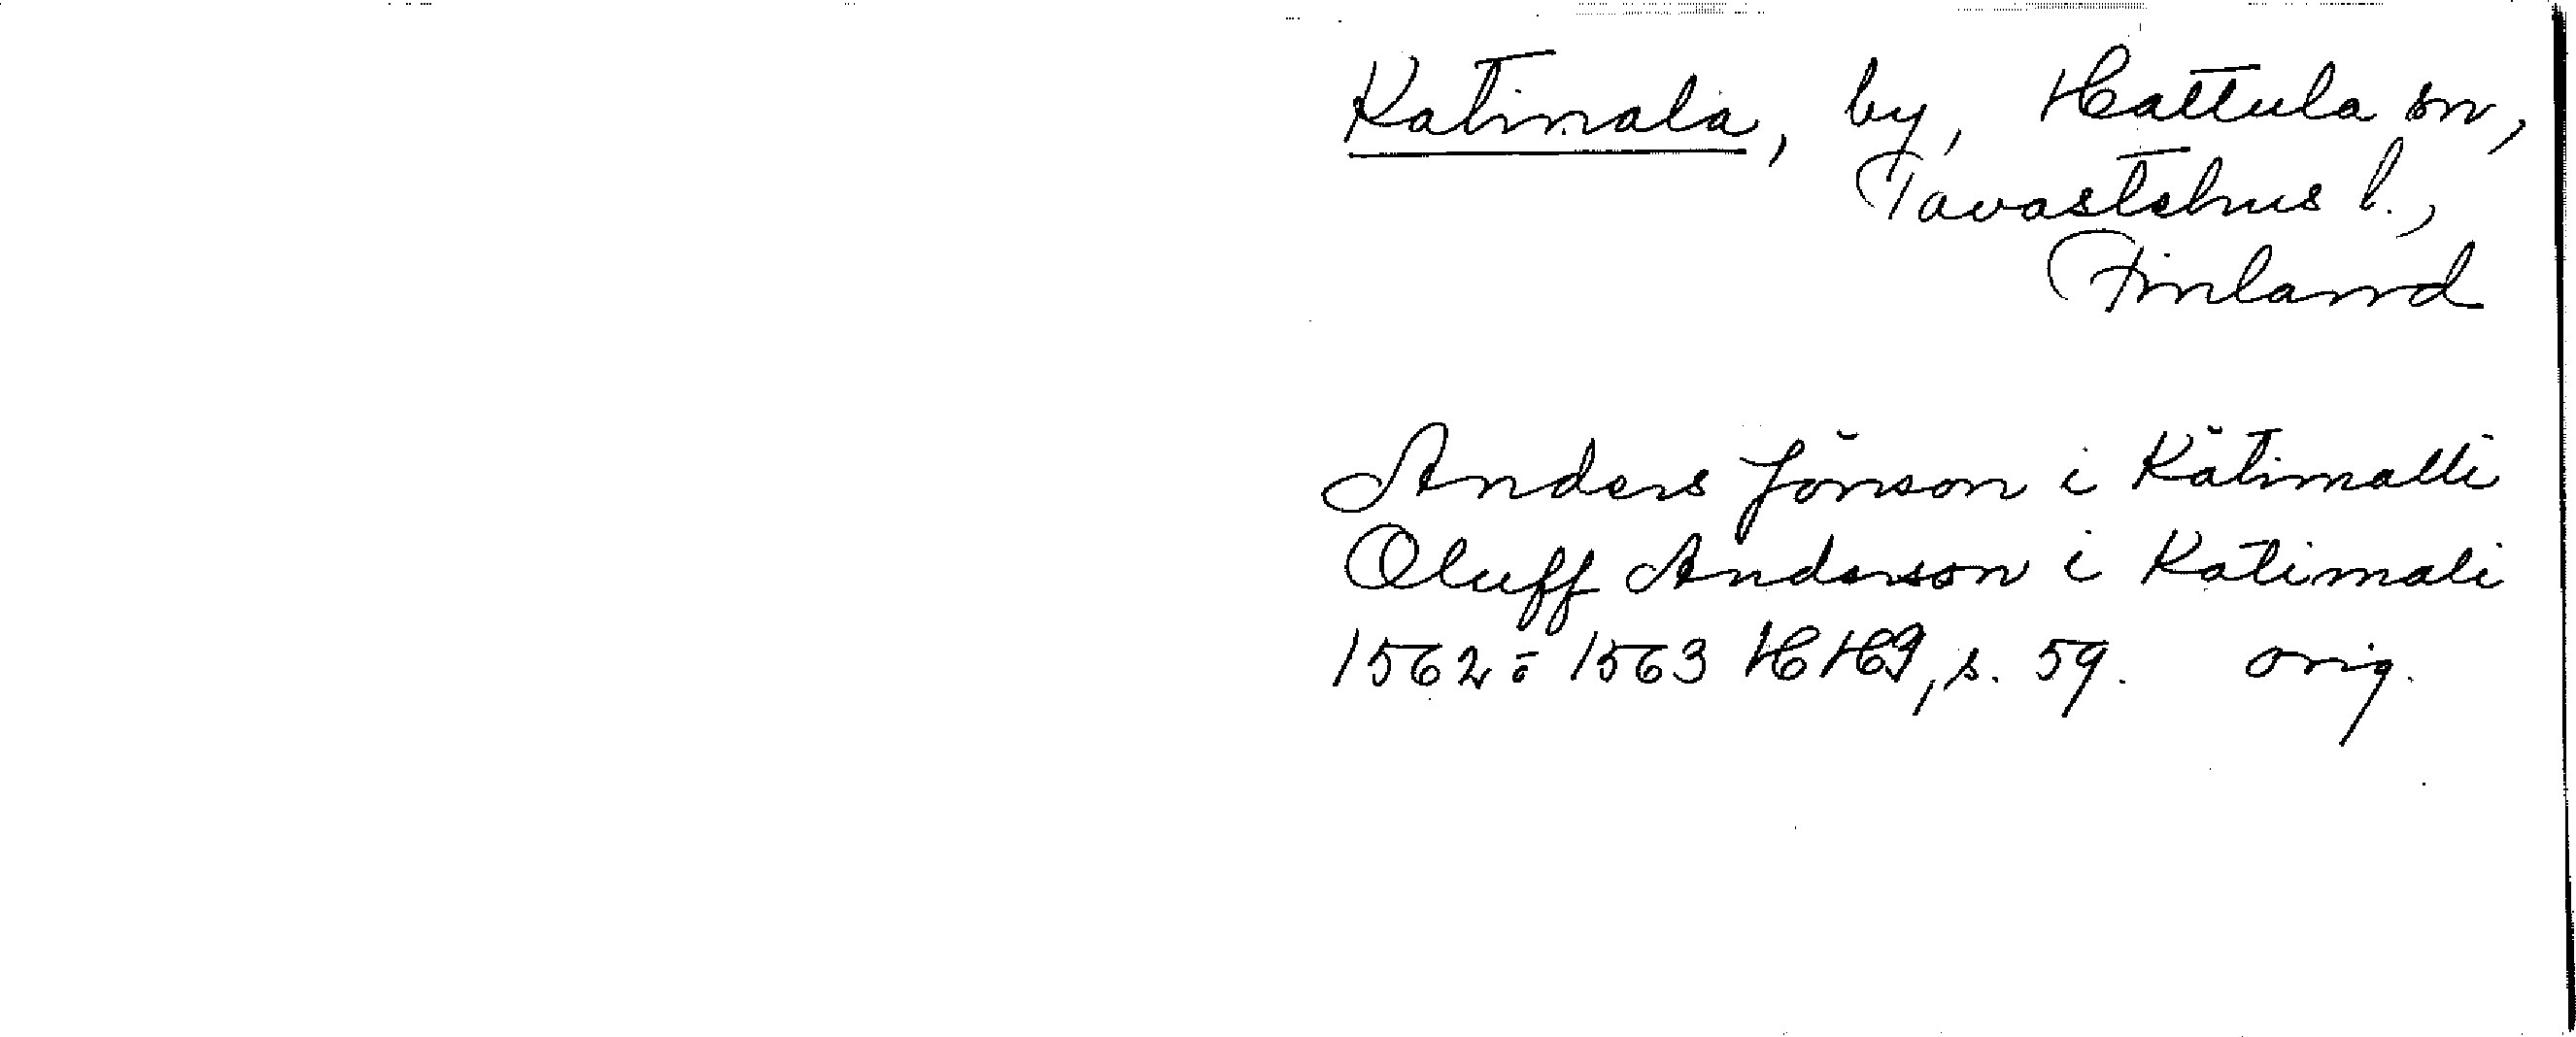 Katimala, by, Hattula sn,
Tavastehus l.,
Finland
Anders Jönson i Kätimalli
Oluff Anderson i Katimali
1562 ö 1563 HH9, s. 59. orig.